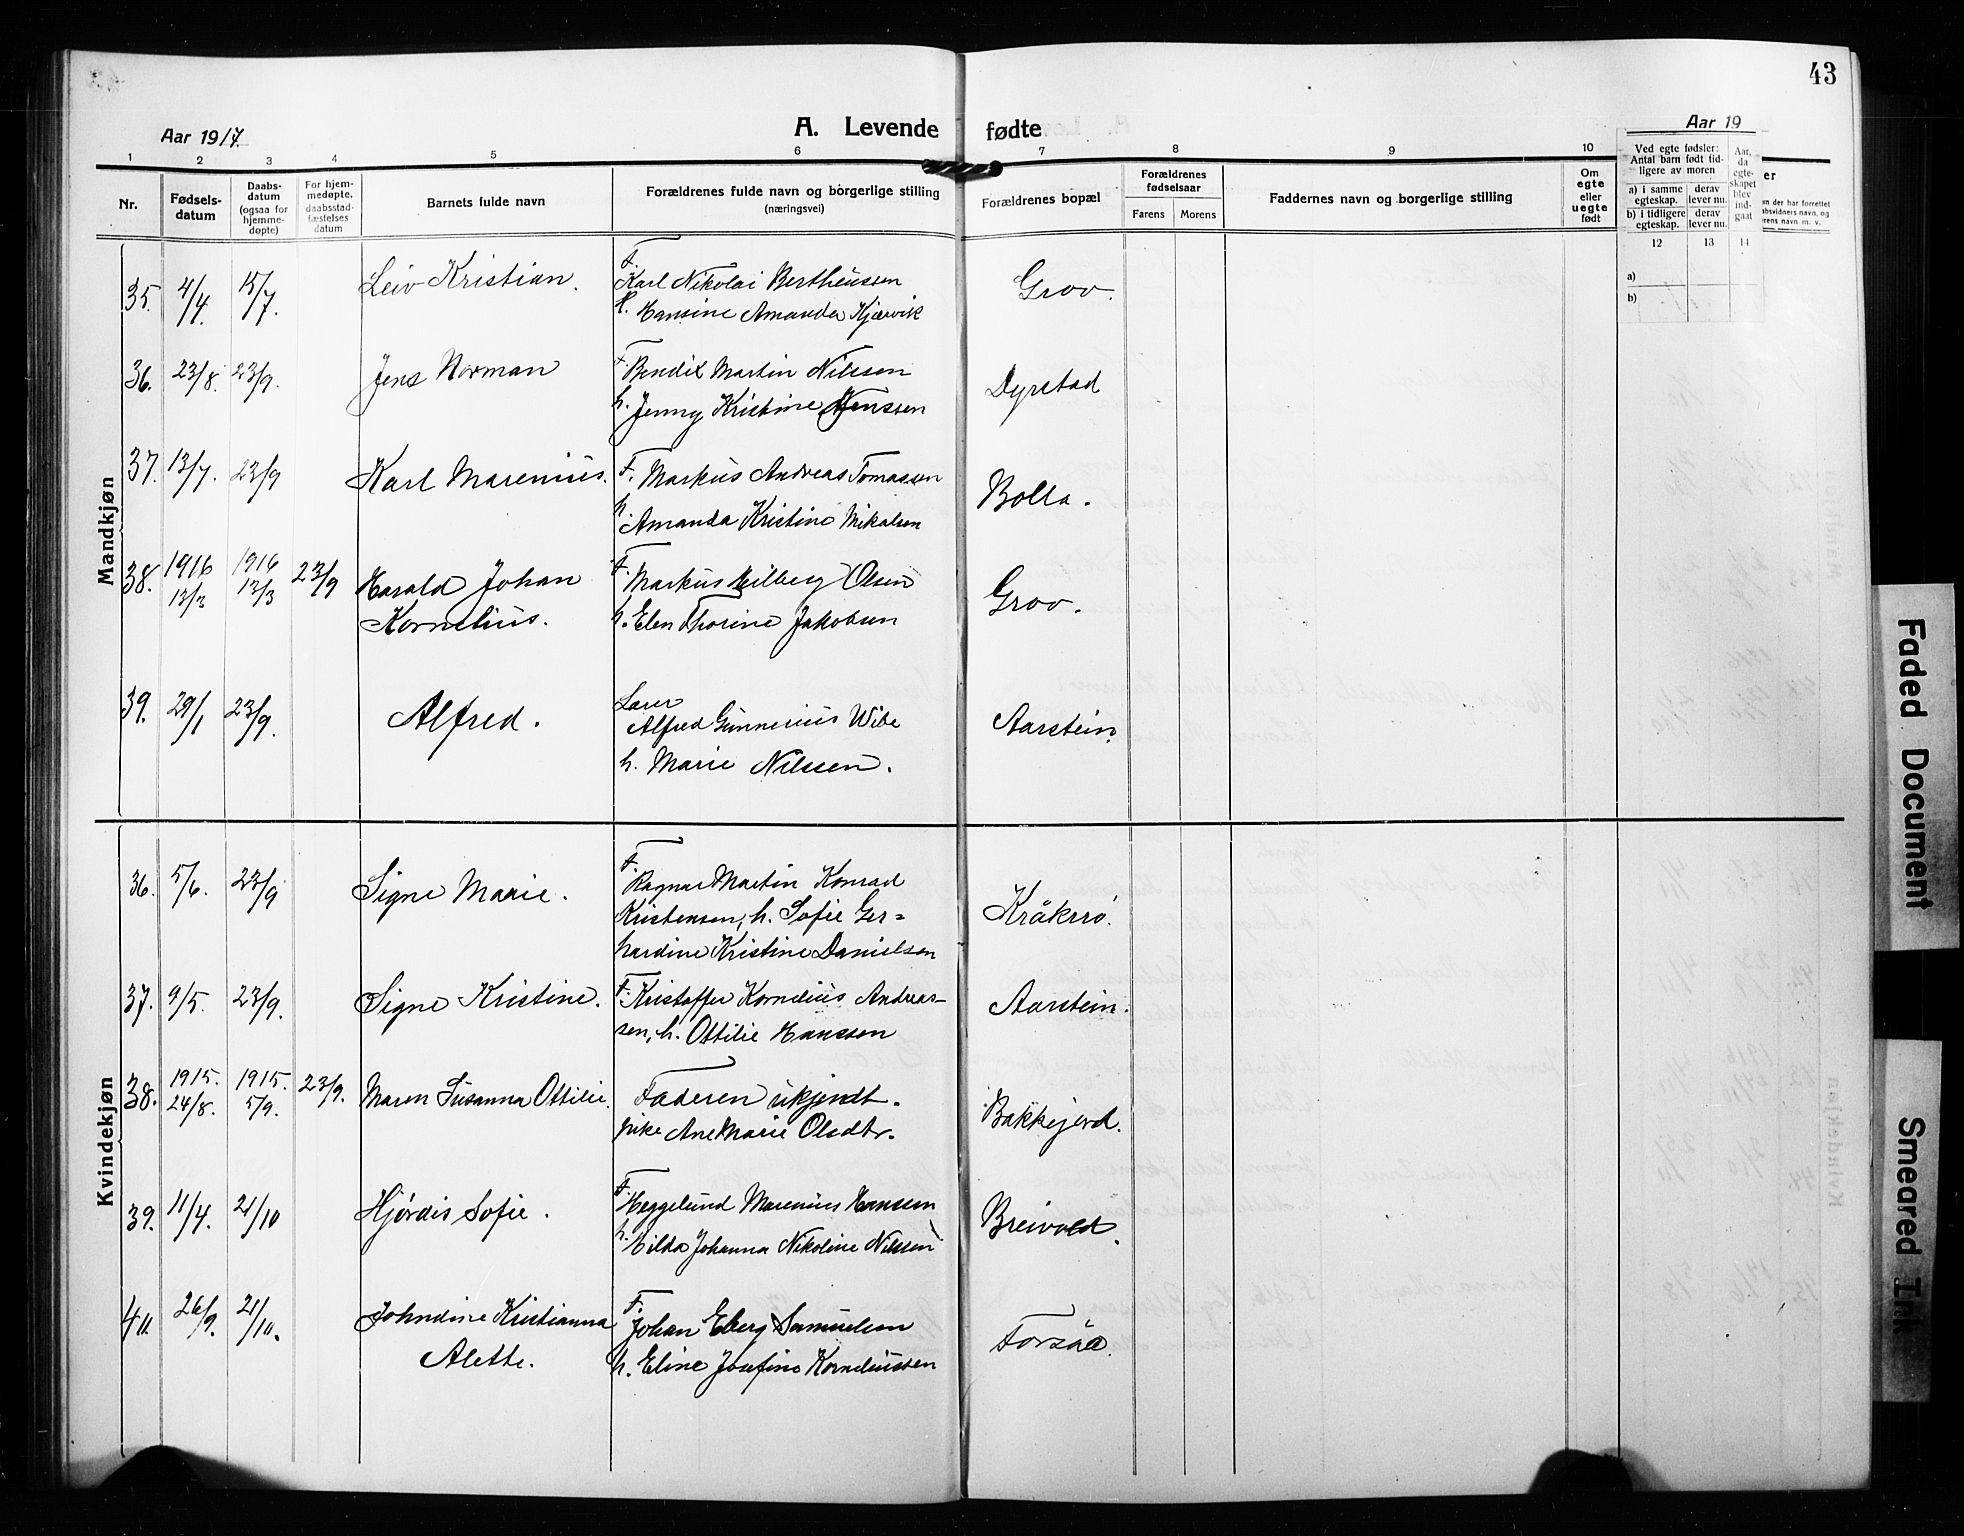 43
Aar 1917.
A. Levende fødte
Aar 19
1 2 3 4 5 6 7 8 9 10
Nr.
Fødsels-
datum
Daabs-
datum
(ogsaa for
hjemme-
døpte)
For hjem-
medøpte,
daabsstad-
fæstelses
datum
Barnets fulde navn
Forældrenes fulde navn og borgerlige stilling
(næringsvei)
Forældrenes bopæl
Forældrenes
fødselsaar
Farens Morens
Faddernes navn og borgerlige stilling
Om
egte
eller
uegte
født
Ved egte fødsler:
Antal barn født tid-
ligere av moren
a) i samme
egteskap.
derav
lever nu.
b) i tidligere
egteskap.
derav
lever nu.
Aar,
da
egte-
skapet
blev
ind-
gaat
12 13 14
a)
b)
Mandkjøn
35. 4/4. 15/7. Leiv Kristian. F. Karl Nikolai Bertheussen
H. Hansine Amanda Kjærvik
Grov.
36. 23/8. 23/9. Jens Norman F. Bendik Martin Nilssen
h. Jenny Kristine Jenssen
Dyrstad
37. 13/7. 23/9 Karl Marenius. F. Markus Andreas Tomassen
h. Amanda Kristine Mikalsen
Bolla.
38. 1916 13/3 1916 13/3 23/9 Harald Johan
Kornelius.
F. Markus Hilberg Olsen
h. Elen Thorine Jakobsen
Grov.
39. 29/1 23/9. Alfred. Lærer
Alfred Gunnerius Wibe
h. Marie Nilssen.
Aarstein.
Kvindekjøn
36. 5/6. 23/9 Signe Marie. F. Ragnar Martin Konrad
Kristensen, h. Sofie Ger=
hardine Kristine Danielsen
Kråkrø.
37. 9/5. 23/9. Signe Kristine. F. Kristoffer Kornelius Andreas-
sen, h. Ottilie Hanssen
Aarstein.
38. 1915. 24/8. 1915. 5/9. 23/9. Maren Susanna Ottilie. Faderen ukjendt.
pike Ane Marie Olsdtr.
Bakkejord.
39. 11/4. 21/10 Hjørdis Sofie. F. Heggelund Marenius Hanssen
h. Hilda Johanna Nikoline Nilssen
Breivold.
40. 26/9. 21/10. Johndine Kristianna
Alette.
F. Johan Eberg Samuelsen
h. Eline Josefine Korneliussen
Forsåa.
Faded Document
Smeared Ink